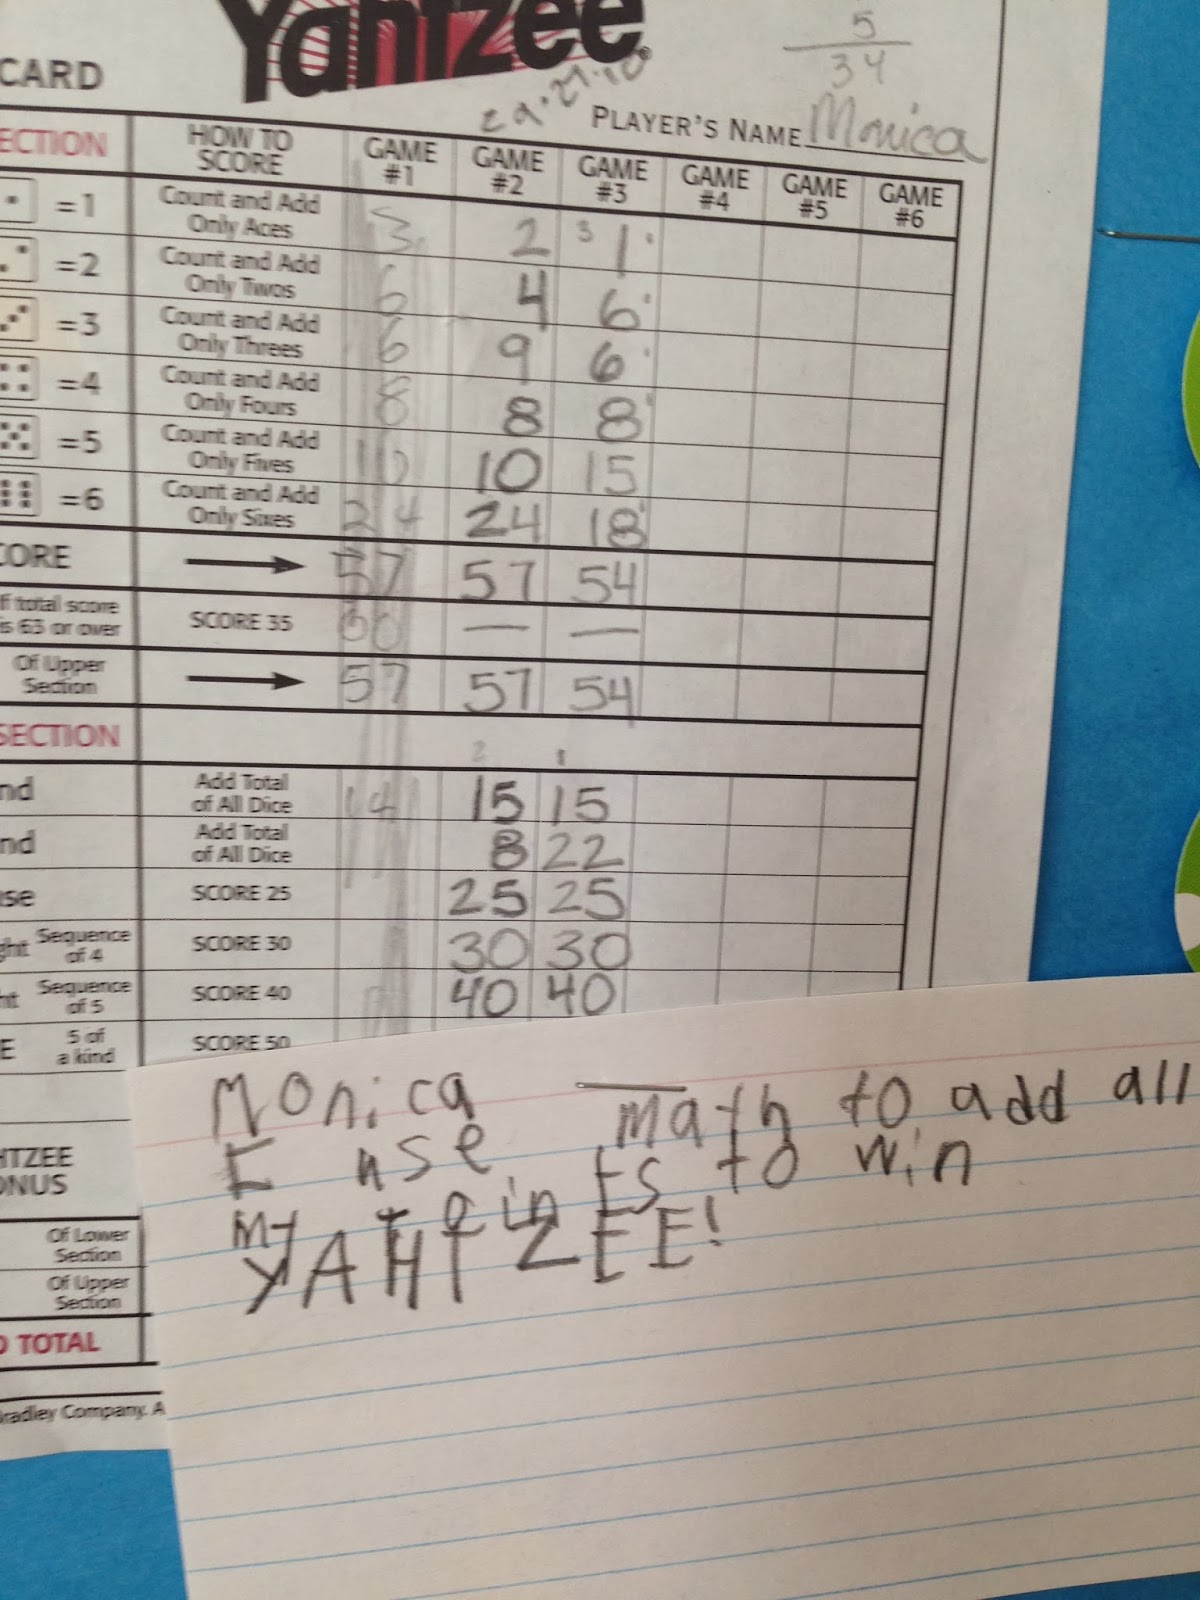 Yahtzee
5
34
CARD
PLAYER'S NAME Monica
ECTION HOW TO SCORE GAME #1 GAME #2 GAME #3 GAME #4 GAME #5 GAME #6
=1 Count and Add Only Aces 3 2 3 1
=2 Count and Add Only Twos 6 4 6
=3 Count and Add Only Threes 6 9 6
=4 Count and Add Only Fours 8 8 8
=5 Count and Add Only Fives 10 10 15
=6 Count and Add Only Sixes 24 24 18
CORE 57 57 54
f total score is 63 or over SCORE 35 — —
Of Upper Section 57 57 54
SECTION
2 1
nd Add Total of All Dice 14 15 15
nd Add Total of All Dice 8 22
se SCORE 25 25 25
ght Sequence of 4 SCORE 30 30 30
ht Sequence of 5 SCORE 40 40 40
E 5 of a kind SCORE 50
HTZEE
ONUS
Of Lower Section
Of Upper Section
D TOTAL
Bradley Company. A
Monica
I use math to add all
my points to win
YAHTZEE!